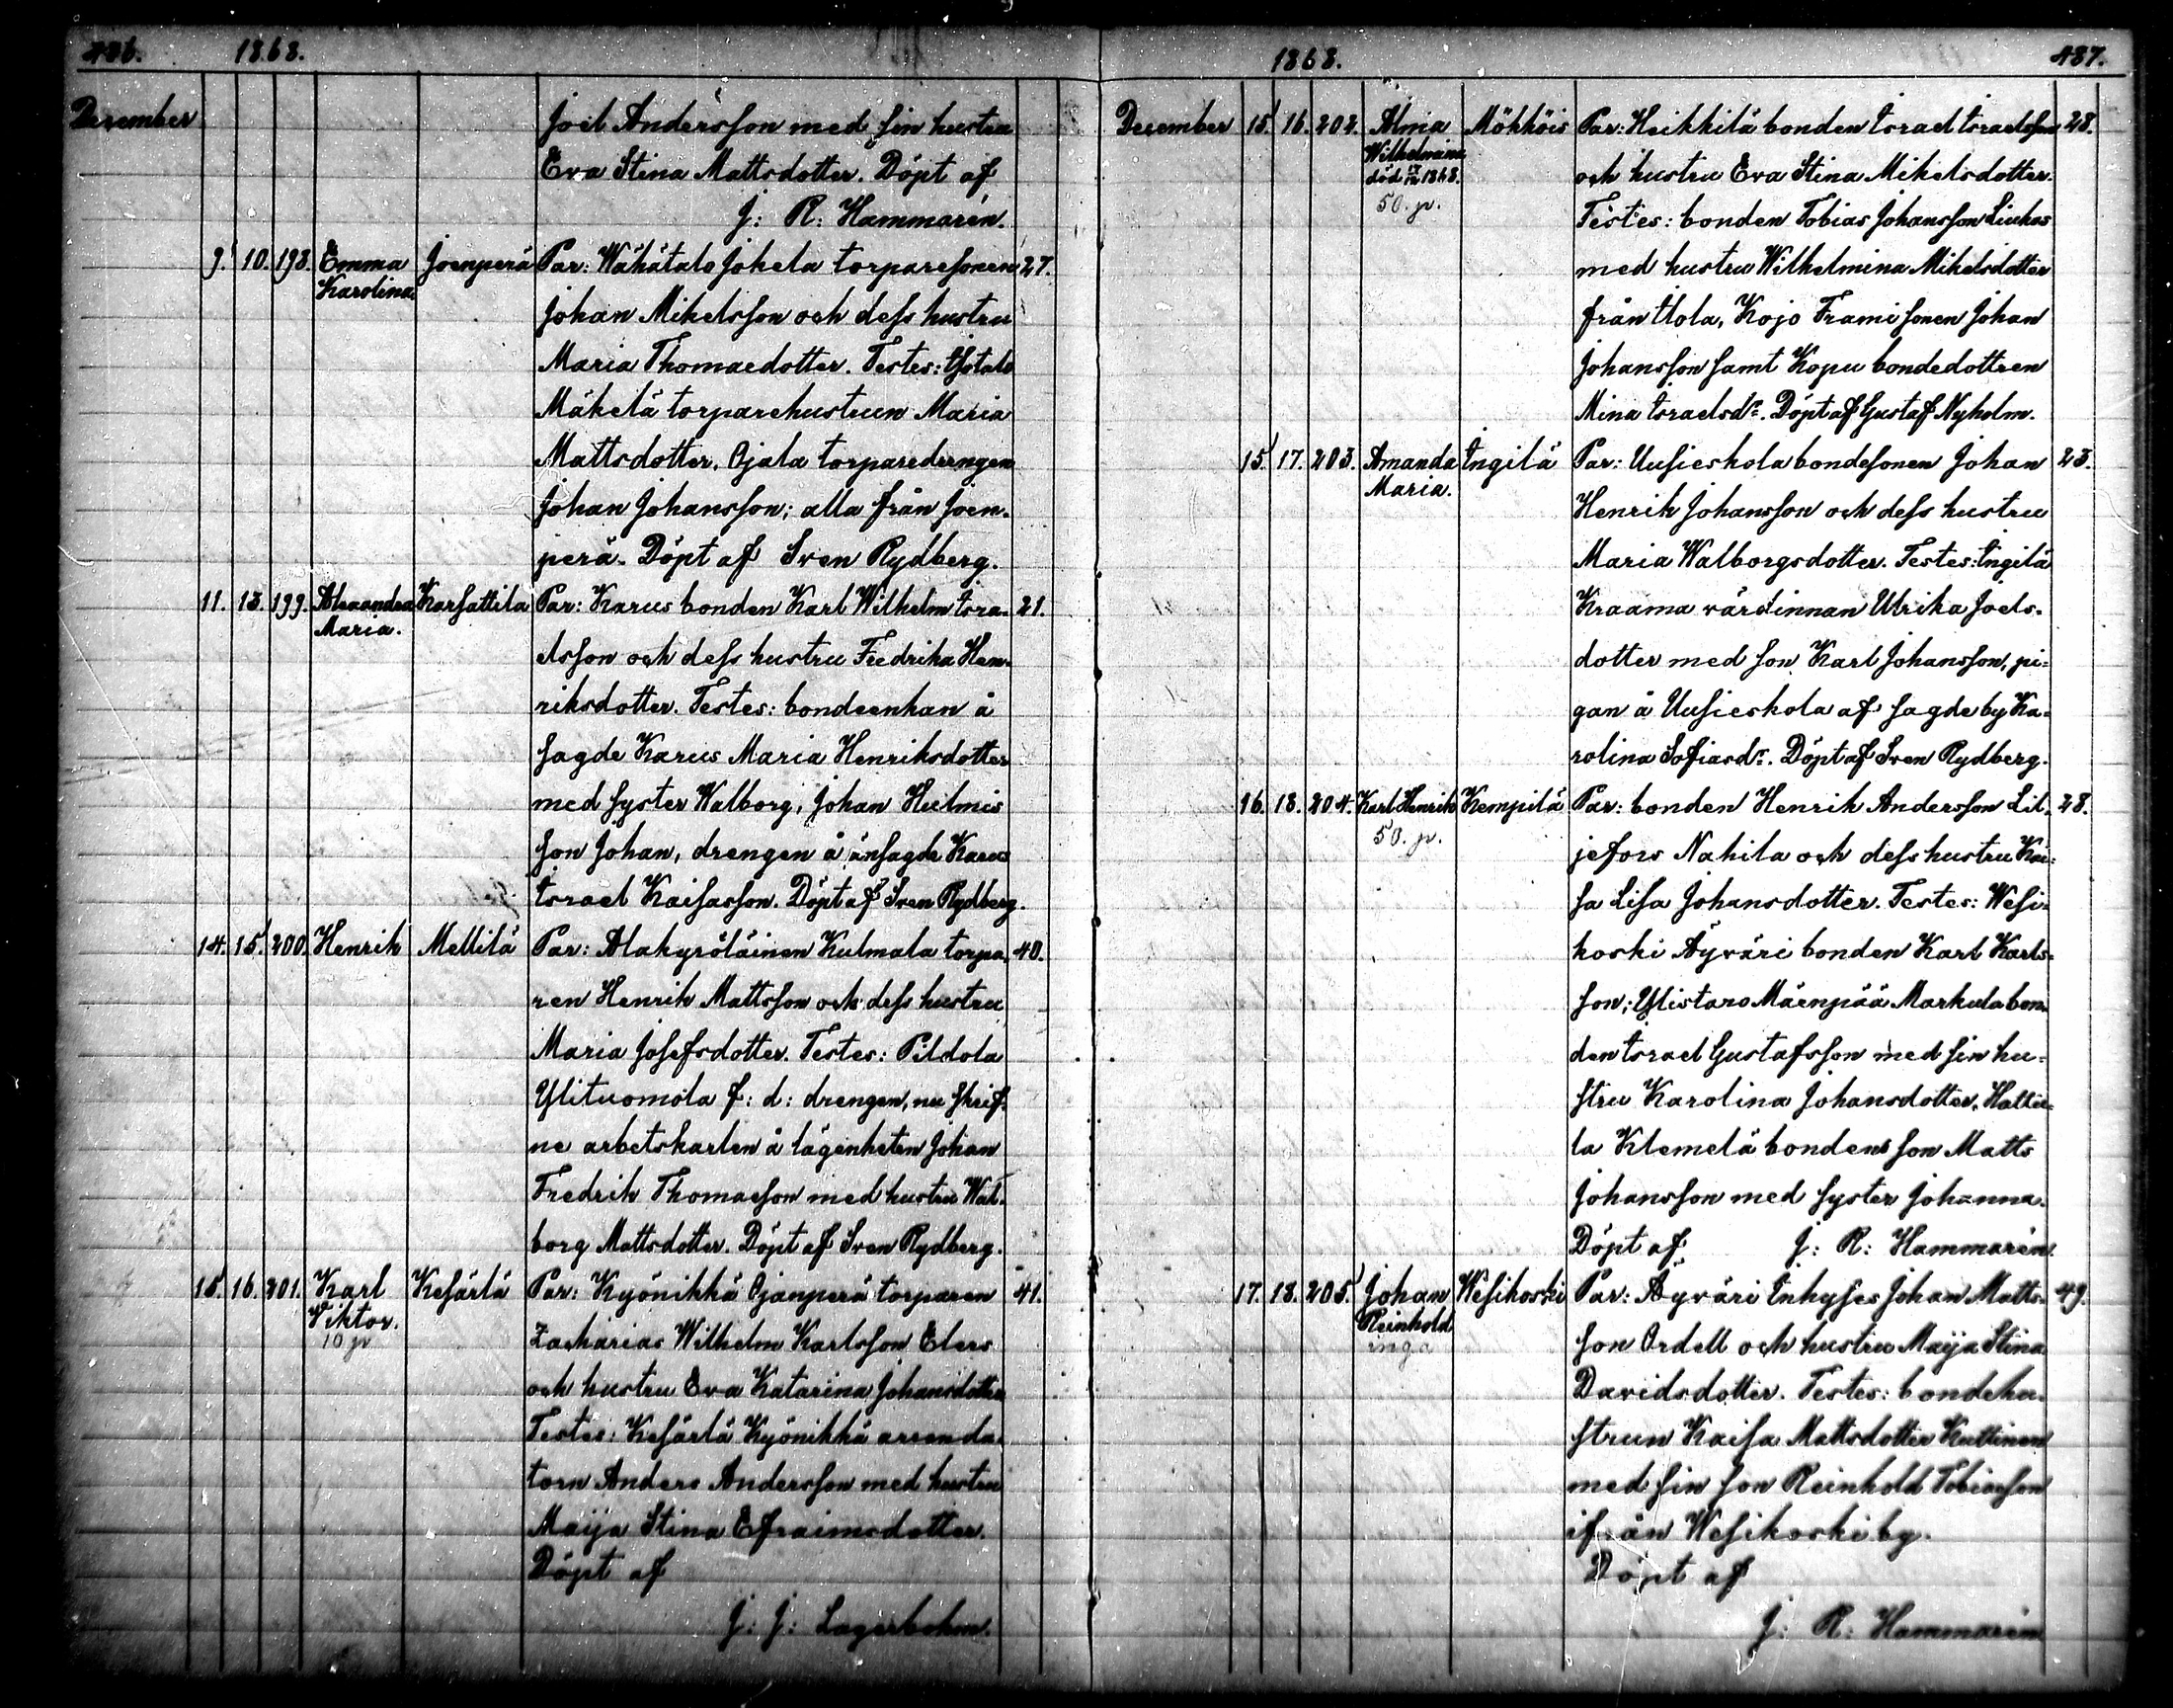 486. 1868.
December Joel Andersson med sin hustru
Eva Stina Mattsdotter. Döpt af
J: R: Hammarén.
9. 10. 198. Emma Joenperä Par: Wähätalo Jokela torparesonen 27.
Karolina.
Johan Mikelsson och dess hustru
Maria Thomaedotter. Testes: Ylötalo
Mäkelä torparehustrun Maria
Mattsdotter, Ojala torparedrengen
Johan Johansson; alla från Joen-
perä. Döpt af Sven Rydberg.
11. 13. 199. Alexandra Karsattila Par: Karus bonden Karl Wilhelm Isra- 21.
Maria.
elsson och dess hustru Fredrika Hen-
riksdotter. Testes: bondeenkan å
sagde Karus Maria Henriksdotter
med syster Walborg, Johan Hulmis
son Johan, drengen å änsagde Karus
Israel Kaisasson. Döpt af Sven Rydberg.
14. 15. 200. Henrik Mellilä Par: Alakyröläinen Kulmala torpa- 40.
ren Henrik Mattsson och dess hustru
Maria Josefsdotter. Testes: Pildola
Ylituomola f: d: drengen, nu skrif-
ne arbetskarlen å lägenheten Johan
Fredrik Thomasson med hustru Wal-
borg Mattsdotter. Döpt af Sven Rydberg.
15. 16. 201. Karl Kesärlä Par: Kyönikkä Ojanperä torparen 41.
Viktor.
10 p
Zacharias Wilhelm Karlsson Elers
och hustru Eva Katarina Johansdotter
Testes: Kesärlä Kyönikkä arrenda-
torn Anders Andersson med hustru
Maija Stina Efraimsdotter.
Döpt af
J: J: Lagerbohm.
1868. 487.
December 15. 16. 202. Alma Mökköis Par: Heikkilä bonden Israel Israelsson 28.
Wilhelmina
död 1868.
50. p.
och hustru Eva Stina Mikelsdotter.
Testes: bonden Tobias Johansson Liukas
med hustru Wilhelmina Mikelsdotter
från Ilola, Kojo Frami sonen Johan
Johansson samt Kopu bondedottren
Mina Israelsdr. Döpt af Gustaf Nyholm.
15. 17. 203. Amanda Ingilä Par: Uusieskola bondesonen Johan 23.
Maria.
Henrik Johansson och dess hustru
Maria Walborgsdotter. Testes: Ingilä
Kraama värdinnan Ulrika Joels-
dotter med son Karl Johansson, pi-
gan å Uusieskola af sagde by Ka-
rolina Sofiasdr. Döpt af Sven Rydberg.
16. 18. 204. Karl Henrik Kempilä Par: bonden Henrik Andersson Lil- 28.
50. p.
jefors Nahila och dess hustru Kai-
sa Lisa Johansdotter. Testes: Wesi-
koski Äyväri bonden Karl Karls-
son; Ylistaro Mäenpää Markula bon-
den Israel Gustafsson med sin hu-
stru Karolina Johansdotter, Hattu-
la Klemelä bondens son Matts
Johansson med syster Johanna.
Döpt af J: R: Hammarén.
17. 18. 205. Johan Wesikoski Par: Äyväri Inhyses Johan Matts- 49.
Reinhold
inga
son Ordell och hustru Maija Stina
Davidsdotter. Testes: bondehu-
strun Kaisa Mattsdotter Kuttinen
med sin son Reinhold Tobiasson
ifrån Wesikoski by.
Döpt af
J: R: Hammarén